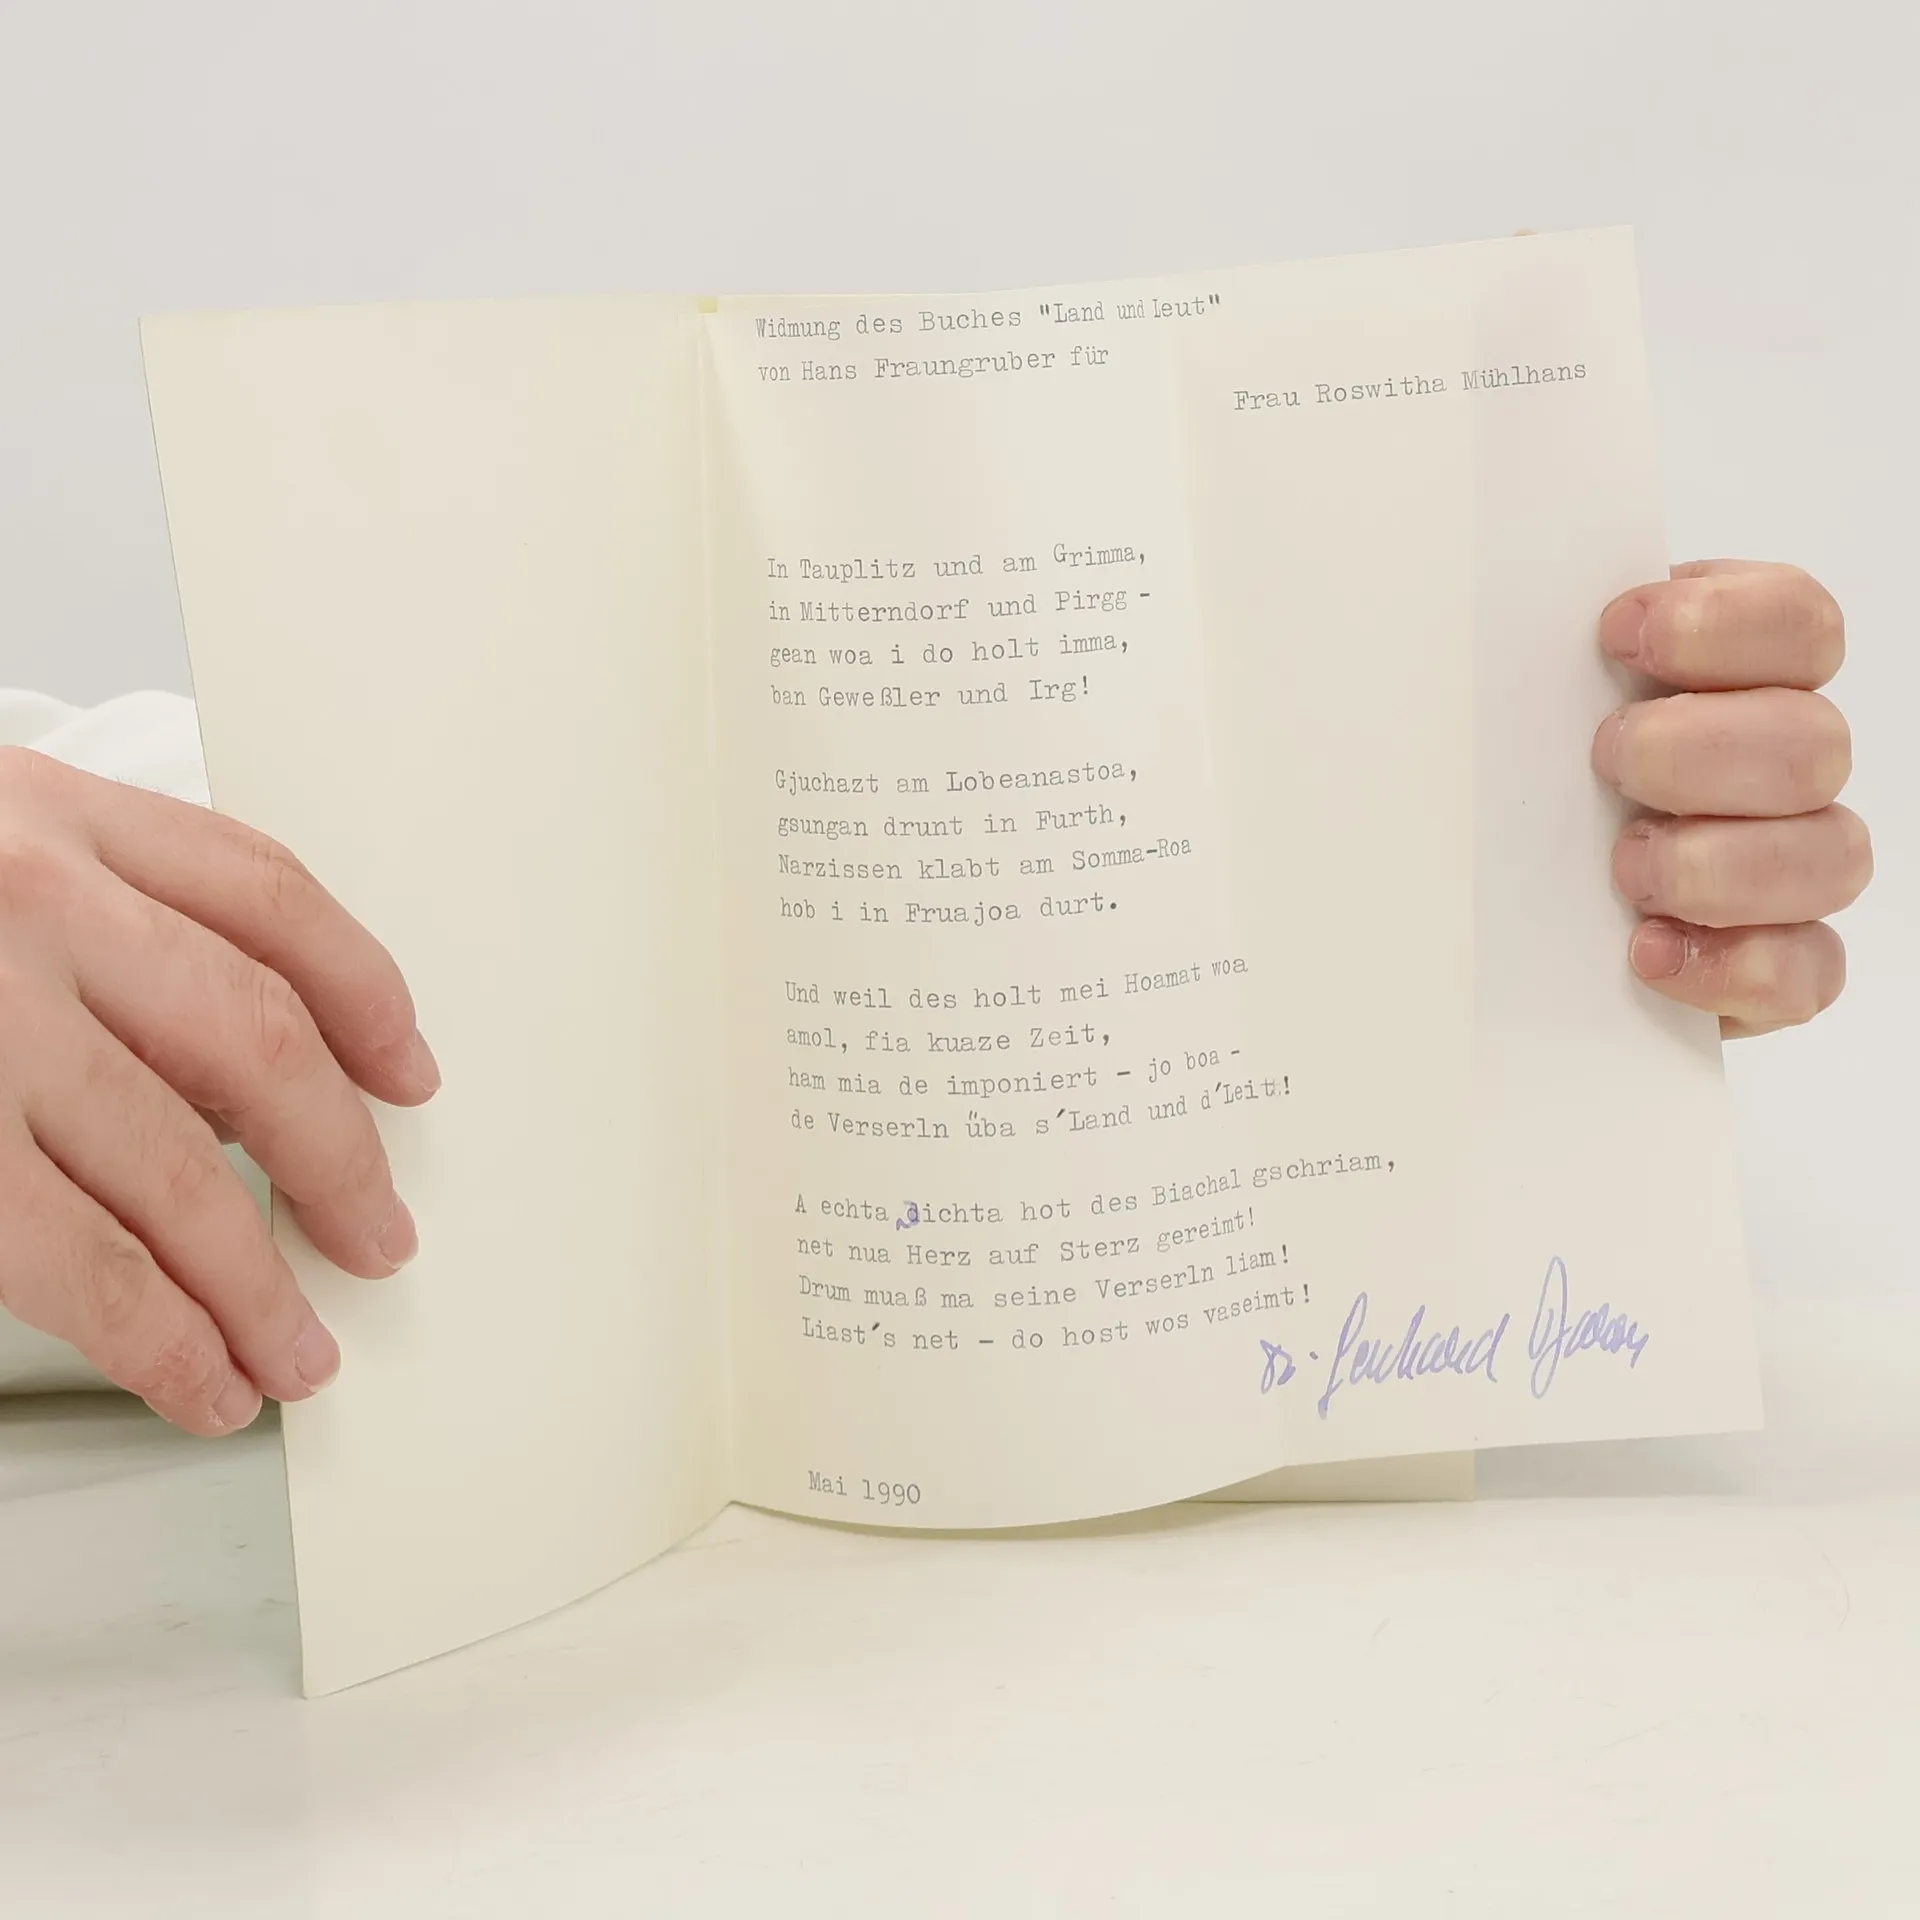 Widmung des Buches "Land und Leut"
von Hans Fraungruber für
Frau Roswitha Mühlhans
In Tauplitz und am Grimma,
in Mitterndorf und Pirgg -
gean woa i do holt imma,
ban Geweßler und Irg!
Gjuchazt am Lobeanastoa,
gsungan drunt in Furth,
Narzissen klabt am Somma-Roa
hob i in Fruajoa durt.
Und weil des holt mei Hoamat woa
amol, fia kuaze Zeit,
ham mia de imponiert - jo boa -
de Verserln üba s'Land und d'Leit!
A echta dichta hot des Biachal gschriam,
net nua Herz auf Sterz gereimt!
Drum muaß ma seine Verserln liam!
Liast's net - do host wos vaseimt!
Mai 1990